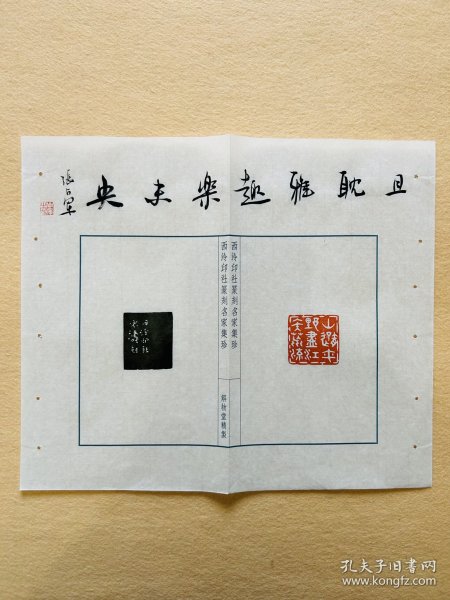 且耽雅趣樂未央
張日軍
西泠印社篆刻名家集珍
西泠印社篆刻名家集珍
山隨平野盡江入大荒流
孔夫子旧书网
www.kongfz.com